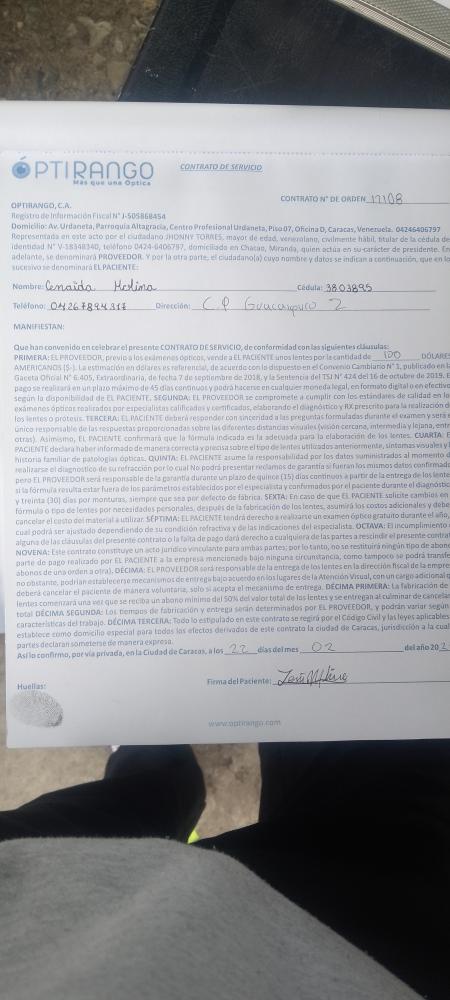 OPTIRANGO
Más que una Óptica
CONTRATO DE SERVICIO
CONTRATO N° DE ORDEN 12108
OPTIRANGO, C.A.
Registro de Información Fiscal N° J-505868454
Domicilio: Av. Urdaneta, Parroquia Altagracia, Centro Profesional Urdaneta, Piso 07, Oficina D, Caracas, Venezuela. 04246406797
Representada en este acto por el ciudadano JHONNY TORRES, mayor de edad, venezolano, civilmente hábil, titular de la cédula de
identidad N° V-18348340, teléfono 0424-6406797, domiciliado en Chacao, Miranda, quien actúa en su carácter de presidente. En
adelante, se denominará PROVEEDOR. Y por la otra parte, el ciudadano(a) cuyo nombre y datos se indican a continuación, que en lo
sucesivo se denominará EL PACIENTE:
Nombre: Cenaida Molina Cédula: 3803895
Teléfono: 04267894317 Dirección: C.P Guaicaipuro 2
MANIFIESTAN:
Que han convenido en celebrar el presente CONTRATO DE SERVICIO, de conformidad con las siguientes cláusulas:
PRIMERA: EL PROVEEDOR, previo a los exámenes ópticos, vende a EL PACIENTE unos lentes por la cantidad de 100 DÓLARES
AMERICANOS ($-). La estimación en dólares es referencial, de acuerdo con lo dispuesto en el Convenio Cambiario N° 1, publicado en l
Gaceta Oficial N° 6.405, Extraordinaria, de fecha 7 de septiembre de 2018, y la Sentencia del TSJ N° 424 del 16 de octubre de 2019. E
pago se realizará en un plazo máximo de 45 días continuos y podrá hacerse en cualquier moneda legal, en formato digital o en efectivo
según la disponibilidad de EL PACIENTE. SEGUNDA: EL PROVEEDOR se compromete a cumplir con los estándares de calidad en lo
exámenes ópticos realizados por especialistas calificados y certificados, elaborando el diagnóstico y RX preciso para la realización d
los lentes o prótesis. TERCERA: EL PACIENTE deberá responder con sinceridad a las preguntas formuladas durante el examen y será e
único responsable de las respuestas proporcionadas sobre las diferentes distancias visuales (visión cercana, intermedia y lejana, entr
otras). Asimismo, EL PACIENTE confirmará que la fórmula indicada es la adecuada para la elaboración de los lentes. CUARTA: E
PACIENTE declara haber informado de manera correcta y precisa sobre el tipo de lentes utilizados anteriormente, síntomas visuales y
historia familiar de patologías ópticas. QUINTA: EL PACIENTE asume la responsabilidad por los datos suministrados al momento d
realizarse el diagnostico de su refracción por lo cual No podrá presentar reclamos de garantía si fueran los mismos datos confirmad
pero EL PROVEEDOR será responsable de la garantía durante un plazo de quince (15) días continuos a partir de la entrega de los lente
si la fórmula resulta estar fuera de los parámetros establecidos por el especialista y confirmados por el paciente durante el diagnóstic
y treinta (30) días por monturas, siempre que sea por defecto de fábrica. SEXTA: En caso de que EL PACIENTE solicite cambios en
fórmula o tipo de lentes por necesidades personales, después de la fabricación de los lentes, asumirá los costos adicionales y debe
cancelar el costo del material a utilizar. SÉPTIMA: EL PACIENTE tendrá derecho a realizarse un examen óptico gratuito durante el año,
cual podrá ser ajustado dependiendo de su condición refractiva y de las indicaciones del especialista. OCTAVA: El incumplimiento
alguna de las cláusulas del presente contrato o la falta de pago dará derecho a cualquiera de las partes a rescindir el presente contrat
NOVENA: Este contrato constituye un acto jurídico vinculante para ambas partes; por lo tanto, no se restituirá ningún tipo de abono
parte de pago realizado por EL PACIENTE a la empresa mencionada bajo ninguna circunstancia, como tampoco se podrá transfe
abonos de una orden a otra). DÉCIMA: EL PROVEEDOR será responsable de la entrega de los lentes en la dirección fiscal de la empre
no obstante, podrían establecerse mecanismos de entrega bajo acuerdo en los lugares de la Atención Visual, con un cargo adicional q
deberá cancelar el paciente de manera voluntaria, solo si acepta el mecanismo de entrega. DÉCIMA PRIMERA: La fabricación de
lentes comenzará una vez que se reciba un abono mínimo del 50% del valor total de los lentes y se entregan al culminar de cancelar
total DÉCIMA SEGUNDA: Los tiempos de fabricación y entrega serán determinados por EL PROVEEDOR, y podrán variar según
características del trabajo. DÉCIMA TERCERA: Todo lo estipulado en este contrato se regirá por el Código Civil y las leyes aplicables
establece como domicilio especial para todos los efectos derivados de este contrato la ciudad de Caracas, jurisdicción a la cual
partes declaran someterse de manera expresa.
Así lo confirmo, por vía privada, en la Ciudad de Caracas, a los 22 días del mes 02 del año 202
Huellas:
Firma del Paciente:
www.optirango.com